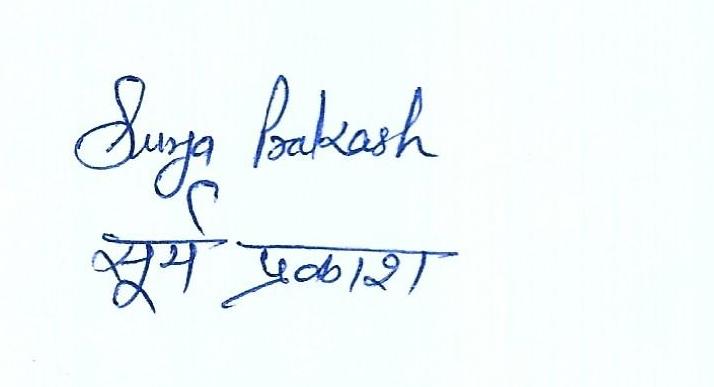 Surya Prakash
सूर्य प्रकाश